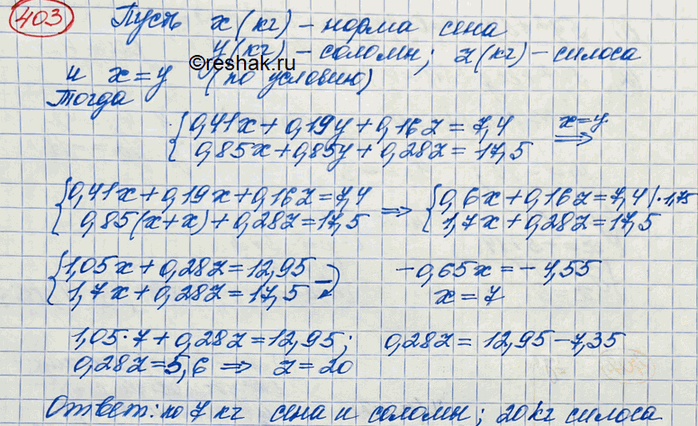 403 Пусть x (кг) – норма сена
y (кг) – соломы; z (кг) – силоса
и x = y (по условию)
©reshak.ru
Тогда
{0,41x + 0,19y + 0,16z = 7,4 x=y
0,85x + 0,85y + 0,28z = 17,5 ⇒
{0,41x + 0,19x + 0,16z = 7,4 ⇒ {0,6x + 0,16z = 7,4 | · 1,75
0,85(x+x) + 0,28z = 17,5 1,7x + 0,28z = 17,5
{1,05x + 0,28z = 12,95 −0,65x = −4,55
1,7x + 0,28z = 17,5 x = 7
1,05·7 + 0,28z = 12,95; 0,28z = 12,95 − 7,35
0,28z = 5,6 ⇒ z = 20
Ответ: по 7 кг сена и соломы; 20 кг силоса